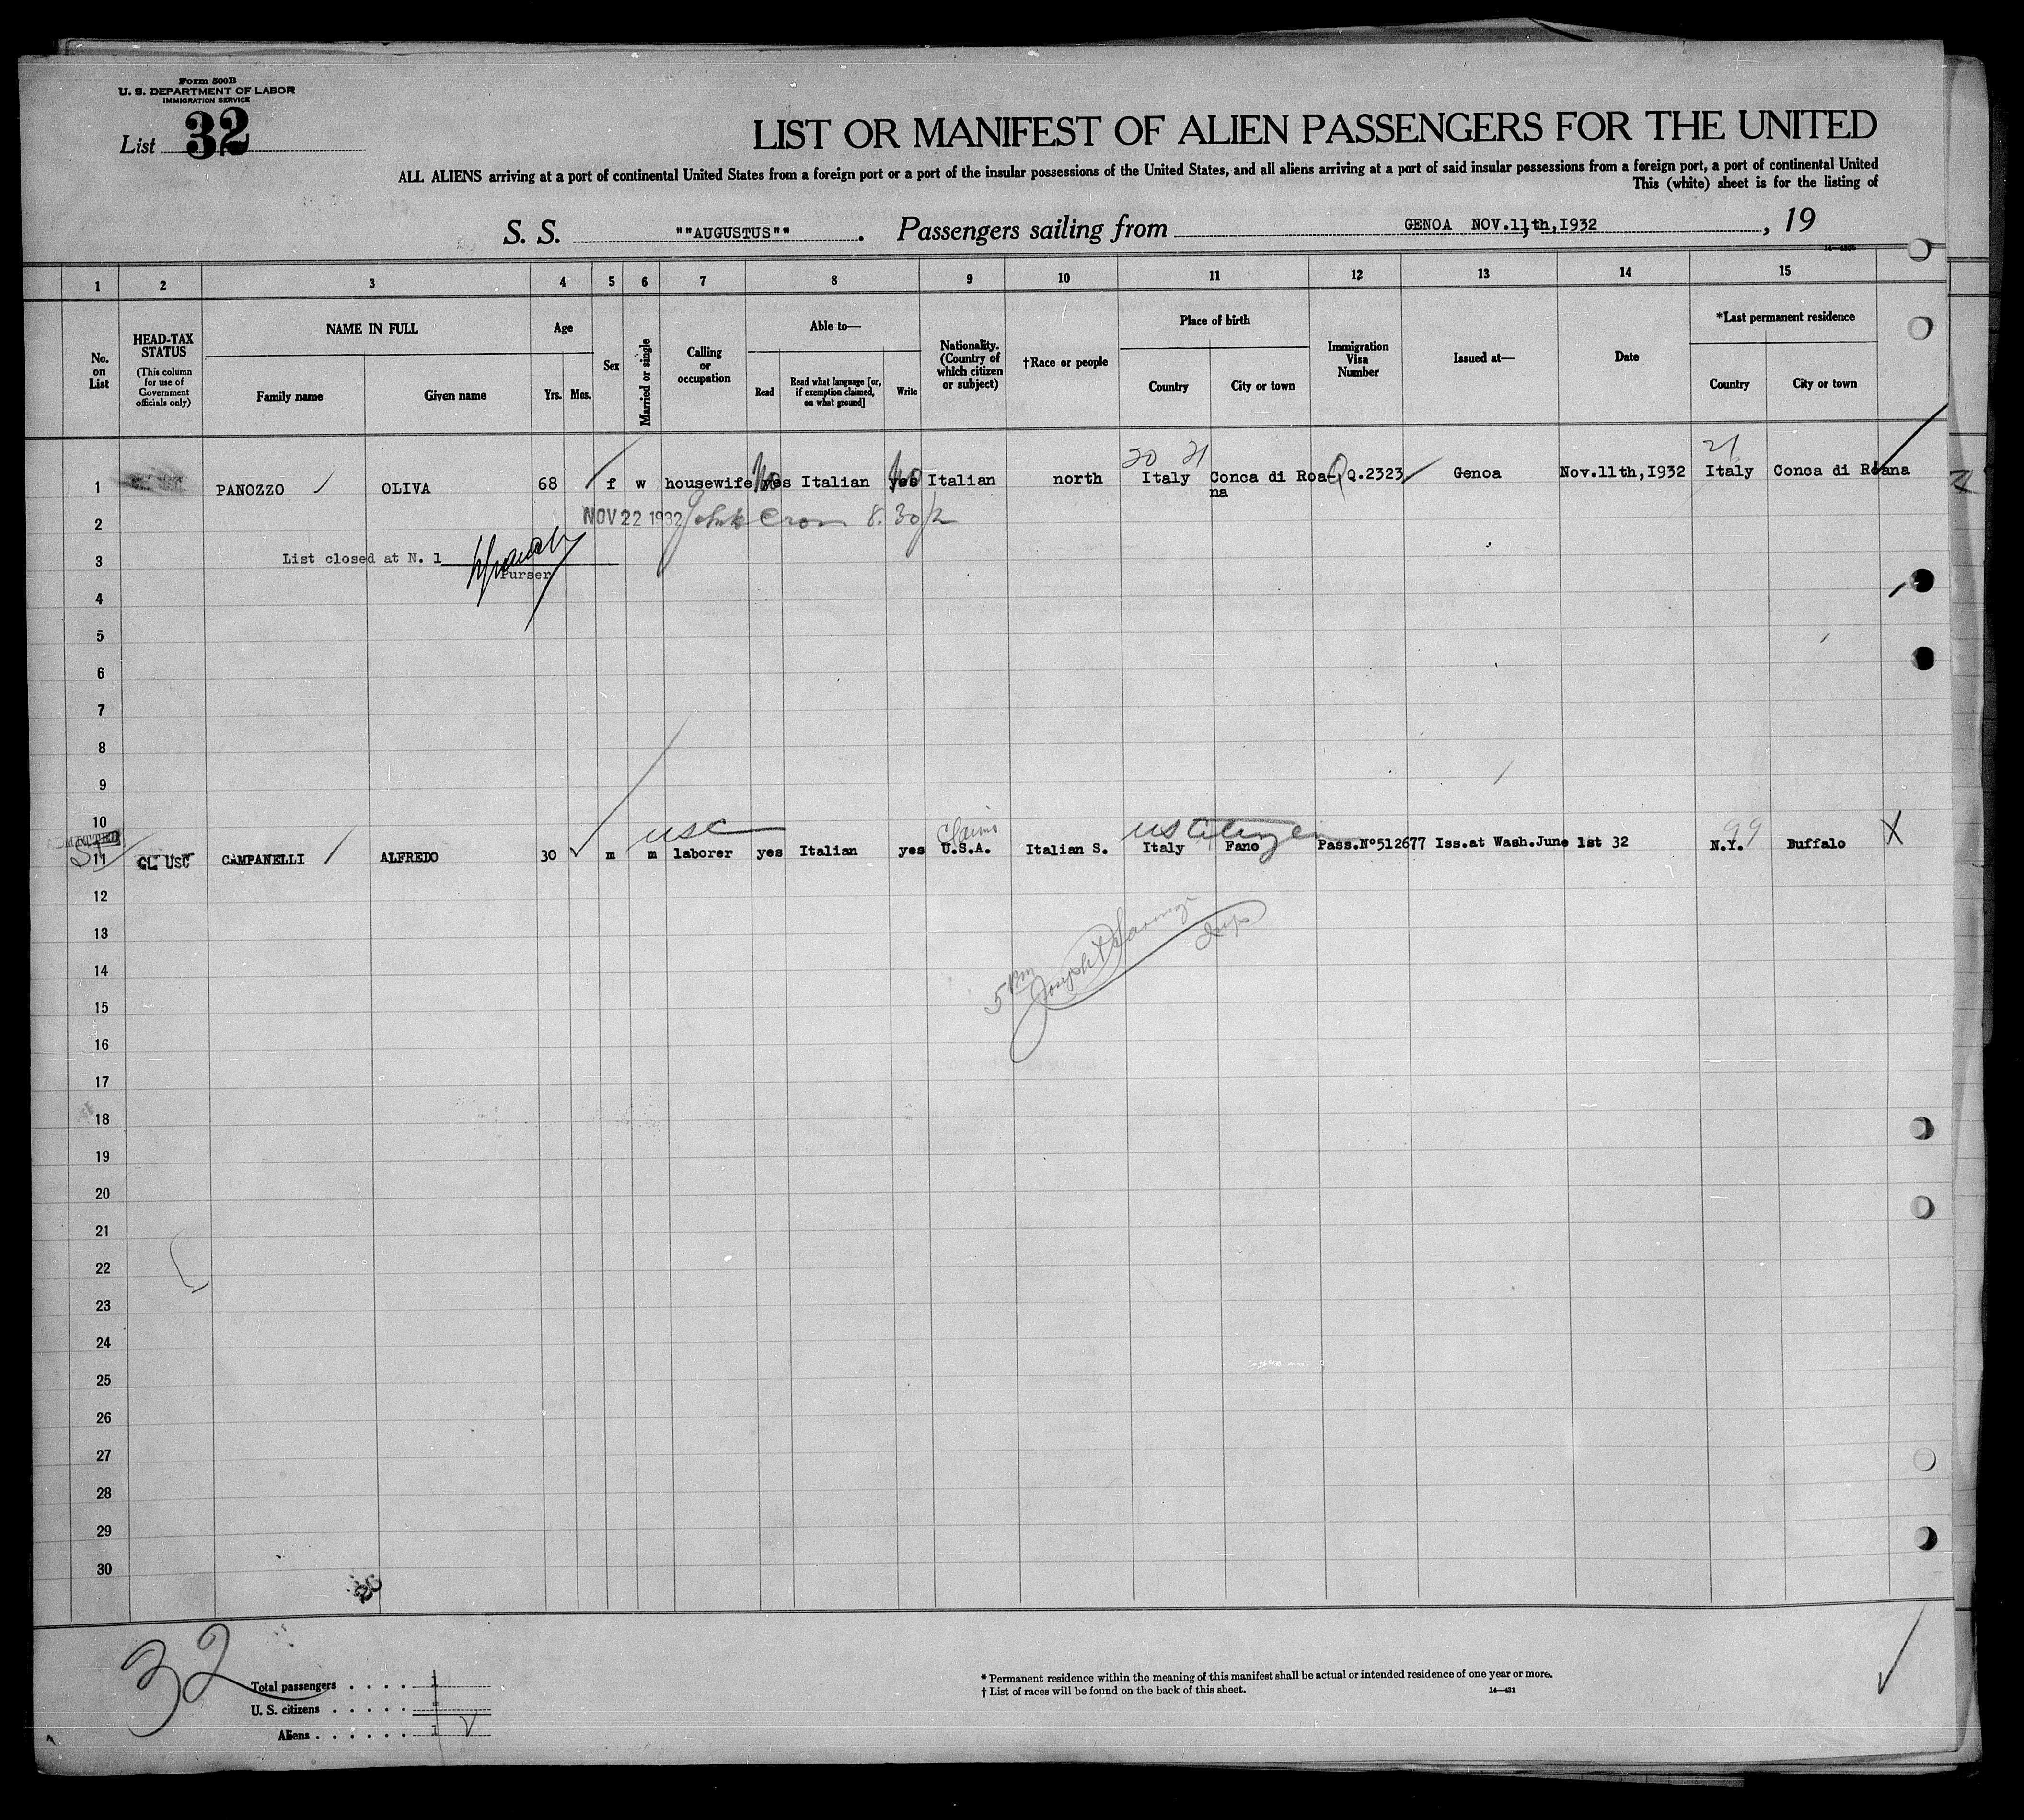 Form 500B
U. S. DEPARTMENT OF LABOR
IMMIGRATION SERVICE
List 32
LIST OR MANIFEST OF ALIEN PASSENGERS FOR THE UNITED
ALL ALIENS arriving at a port of continental United States from a foreign port or a port of the insular possessions of the United States, and all aliens arriving at a port of said insular possessions from a foreign port, a port of continental United
This (white) sheet is for the listing of
S. S. ""AUGUSTUS"". Passengers sailing from GENOA NOV.11th,I932 , 19
1 2 3 4 5 6 7 8 9 10 11 12 13 14 15
No. on List
HEAD-TAX STATUS
(This column for use of Government officials only)
NAME IN FULL
Family name Given name
Age
Yrs. Mos.
Sex
Married or single
Calling or occupation
Able to—
Read Read what language [or, if exemption claimed, on what ground] Write
Nationality. (Country of which citizen or subject)
†Race or people
Place of birth
Country City or town
Immigration Visa Number
Issued at—
Date
*Last permanent residence
Country City or town
20 21 21
1 PANOZZO OLIVA 68 f w housewife no yes Italian no yes Italian north Italy Conca di Roa- Q.2323 Genoa Nov.11th,I932 Italy Conca di Roana
na
2 NOV 22 1932 8.30
3 List closed at N. 1
Purser
4
5
6
7
8
9
10
ADMITTED USC Claims US Citizen 99
11 CL USC CAMPANELLI ALFREDO 30 m m laborer yes Italian yes U.S.A. Italian S. Italy Fano Pass.Nº512677 Iss.at Wash.June 1st 32 N.Y. Buffalo X
12
13
14
5 PM Joseph Insp
15
16
17
18
19
20
21
22
23
24
25
26
27
28
29
30
32
Total passengers . . . . 1
U. S. citizens . . . . . =
Aliens . . . . . . 1
* Permanent residence within the meaning of this manifest shall be actual or intended residence of one year or more.
† List of races will be found on the back of this sheet.
14—431